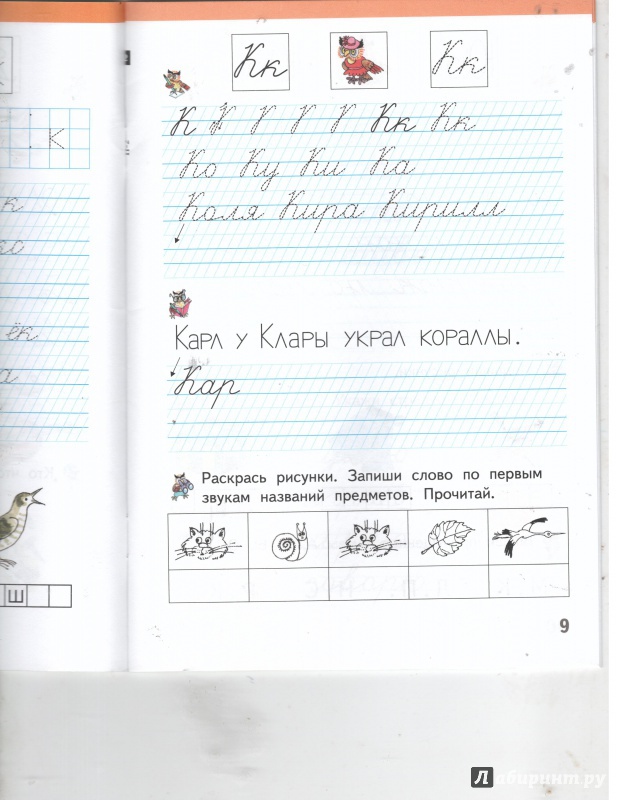 Кк Кк
к
К К Кк Кк
Ко Ку Ки Ка
Коля Кира Кирилл
к
ёк
а
Карл у Клары украл кораллы.
Кар
Раскрась рисунки. Запиши слово по первым
звукам названий предметов. Прочитай.
ш
9
Лабиринт.ру